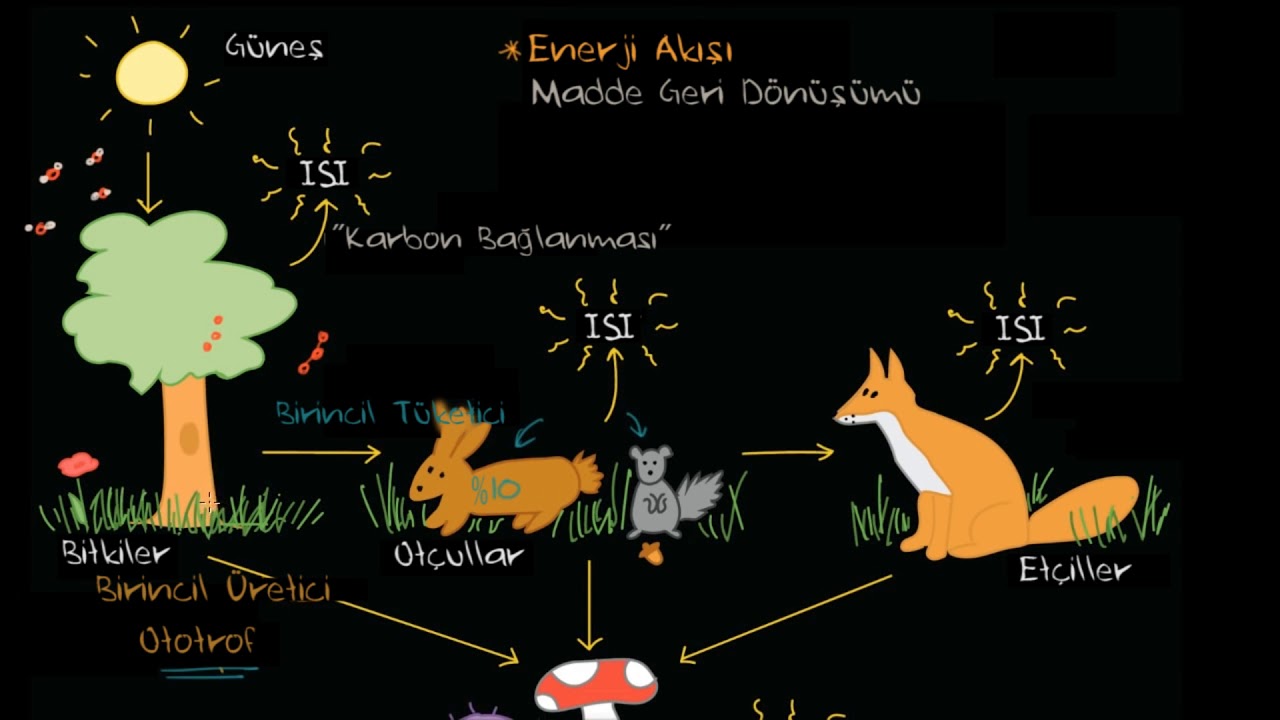 Güneş
*Enerji Akışı
Madde Geri Dönüşümü
ISI
"Karbon Bağlanması"
ISI
ISI
Birincil Tüketici
%10
Bitkiler
Otçullar
Etçiller
Birincil Üretici
Ototrof